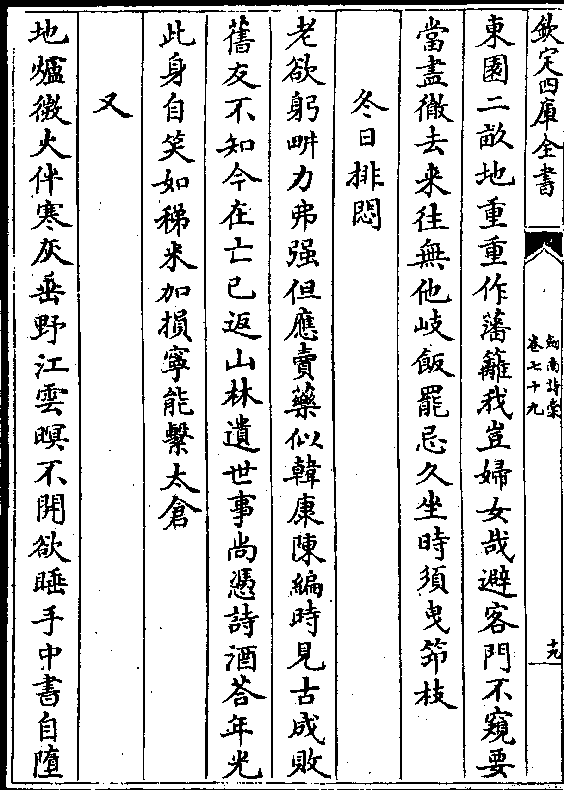 欽定四庫全書
劍南詩稾
卷七十九
十九
東園二畝地重重作藩籬我豈婦女哉避客門不窺要
當盡徹去来往無他岐飯罷忌久坐時須曳筇枝
冬日排悶
老欲躬畊力弗强但應賣藥似韓康陳編時見古成敗
舊友不知今在亡已返山林遺世事尚憑詩酒答年光
此身自笑如稊米加損寧能繫太倉
又
地爐微火伴寒灰垂野江雲暝不開欲睡手中書自墮